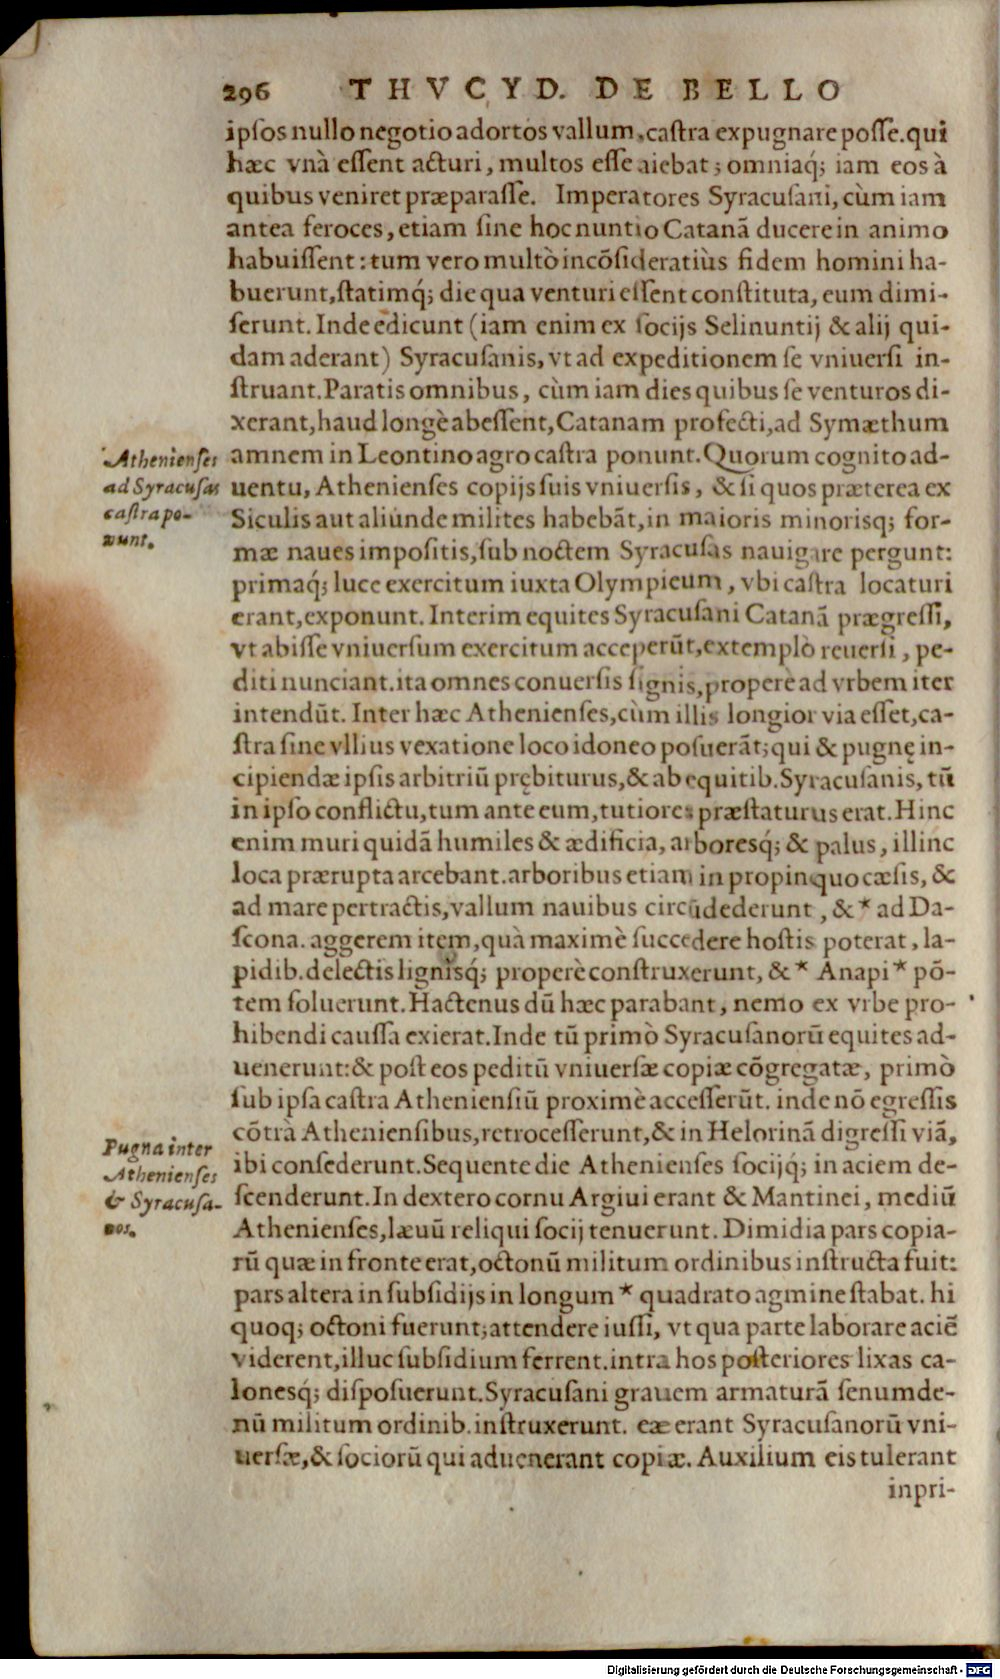 296 THVCYD. DE BELLO
ipſos nullo negotio adortos vallum, caſtra expugnare poſſe. qui
hæc vnà eſſent acturi, multos eſſe aiebat; omniaq́; iam eos à
quibus veniret præparaſſe. Imperatores Syracuſani, cùm iam
antea feroces, etiam ſine hoc nuntio Catanã ducere in animo
habuiſſent: tum vero multò incõſideratiùs fidem homini ha-
buerunt, ſtatimq́; die qua venturi eſſent conſtituta, eum dimi-
ſerunt. Inde edicunt (iam enim ex ſocijs Selinuntij & alij qui-
dam aderant) Syracuſanis, vt ad expeditionem ſe vniuerſi in-
ſtruant. Paratis omnibus, cùm iam dies quibus ſe venturos di-
xerant, haud longè abeſſent, Catanam profecti, ad Symæthum
amnem in Leontino agro caſtra ponunt. Quorum cognito ad-
uentu, Athenienſes copijs ſuis vniuerſis, & ſi quos præterea ex
Siculis aut aliunde milites habebãt, in maioris minorisq; for-
mæ naues impoſitis, ſub noctem Syracuſas nauigare pergunt:
primaq́; luce exercitum iuxta Olympieum, vbi caſtra locaturi
erant, exponunt. Interim equites Syracuſani Catanã prægreſſi,
vt abiſſe vniuerſum exercitum acceperũt, extemplò reuerſi, pe-
diti nunciant. ita omnes conuerſis ſignis, properè ad vrbem iter
intendũt. Inter hæc Athenienſes, cùm illis longior via eſſet, ca-
ſtra ſine vllius vexatione loco idoneo poſuerãt; qui & pugnę in-
cipiendæ ipſis arbitriũ prębiturus, & ab equitib. Syracuſanis, tũ
in ipſo conflictu, tum ante eum, tutiores præſtaturus erat. Hinc
enim muri quidã humiles & ædificia, arboresq́; & palus, illinc
loca prærupta arcebant. arboribus etiam in propinquo cæſis, &
ad mare pertractis, vallum nauibus circũdederunt, & * ad Da-
ſcona. aggerem item, quà maximè ſuccedere hoſtis poterat, la-
pidib. delectis lignisq́; properè conſtruxerunt, & * Anapi * põ-
tem ſoluerunt. Hactenus dũ hæc parabant, nemo ex vrbe pro-
hibendi cauſſa exierat. Inde tũ primò Syracuſanorũ equites ad-
uenerunt: & poſt eos peditũ vniuerſæ copiæ cõgregatæ, primò
ſub ipſa caſtra Athenienſiũ proximè acceſſerũt. inde nõ egreſſis
cõtrà Athenienſibus, retroceſſerunt, & in Helorinã digreſſi viã,
ibi conſederunt. Sequente die Athenienſes ſocijq́; in aciem de-
ſcenderunt. In dextero cornu Argiui erant & Mantinei, mediũ
Athenienſes, læuũ reliqui ſocij tenuerunt. Dimidia pars copia-
rũ quæ in fronte erat, octonũ militum ordinibus inſtructa fuit:
pars altera in ſubſidijs in longum * quadrato agmine ſtabat. hi
quoq; octoni fuerunt; attendere iuſſi, vt qua parte laborare aciẽ
viderent, illuc ſubſidium ferrent. intra hos poſteriores lixas ca-
lonesq́; diſpoſuerunt. Syracuſani grauem armaturã ſenumde-
nũ militum ordinib. inſtruxerunt. eæ erant Syracuſanorũ vni-
uerſæ, & ſociorũ qui aduenerant copiæ. Auxilium eis tulerant
inpri-
Athenienſes
ad Syracuſas
caſtra po-
nunt.
Pugna inter
Athenienſes
& Syracuſa-
nos.
Digitalisierung gefördert durch die Deutsche Forschungsgemeinschaft - DFG